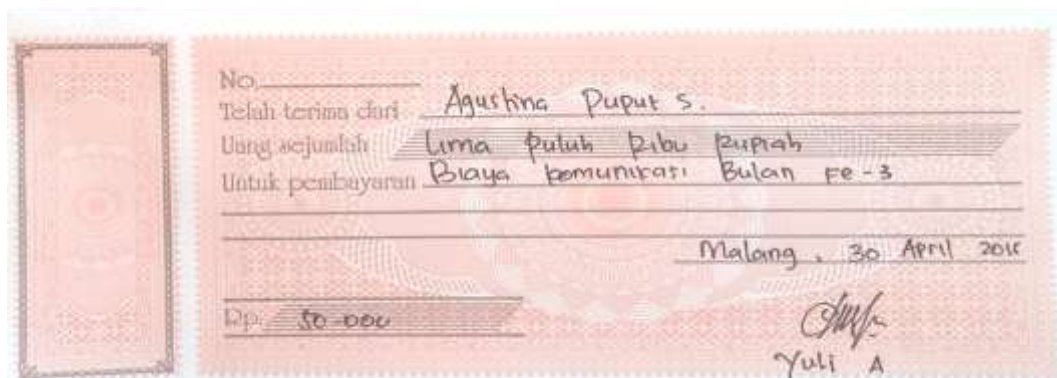 No.
Telah terima dari Agustina Puput S.
Uang sejumlah Lima Puluh Ribu Rupiah
Untuk pembayaran Biaya komunikasi Bulan Ke-3
Malang, 30 April
Rp. 50.000
Yuli A